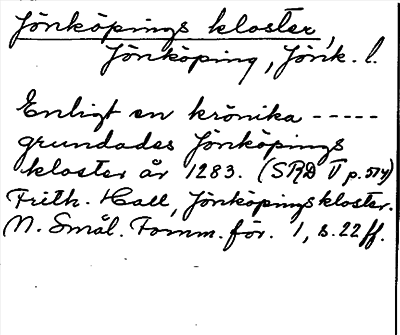 Jönköpings kloster,
Jönköping, Jönk. l.
Enligt en krönika -----
grundades Jönköpings
kloster år 1283. (SRD V p. 574)
Frith. Hall, Jönköpings kloster.
N. Smål. Fornm. för. 1, s. 22 ff.